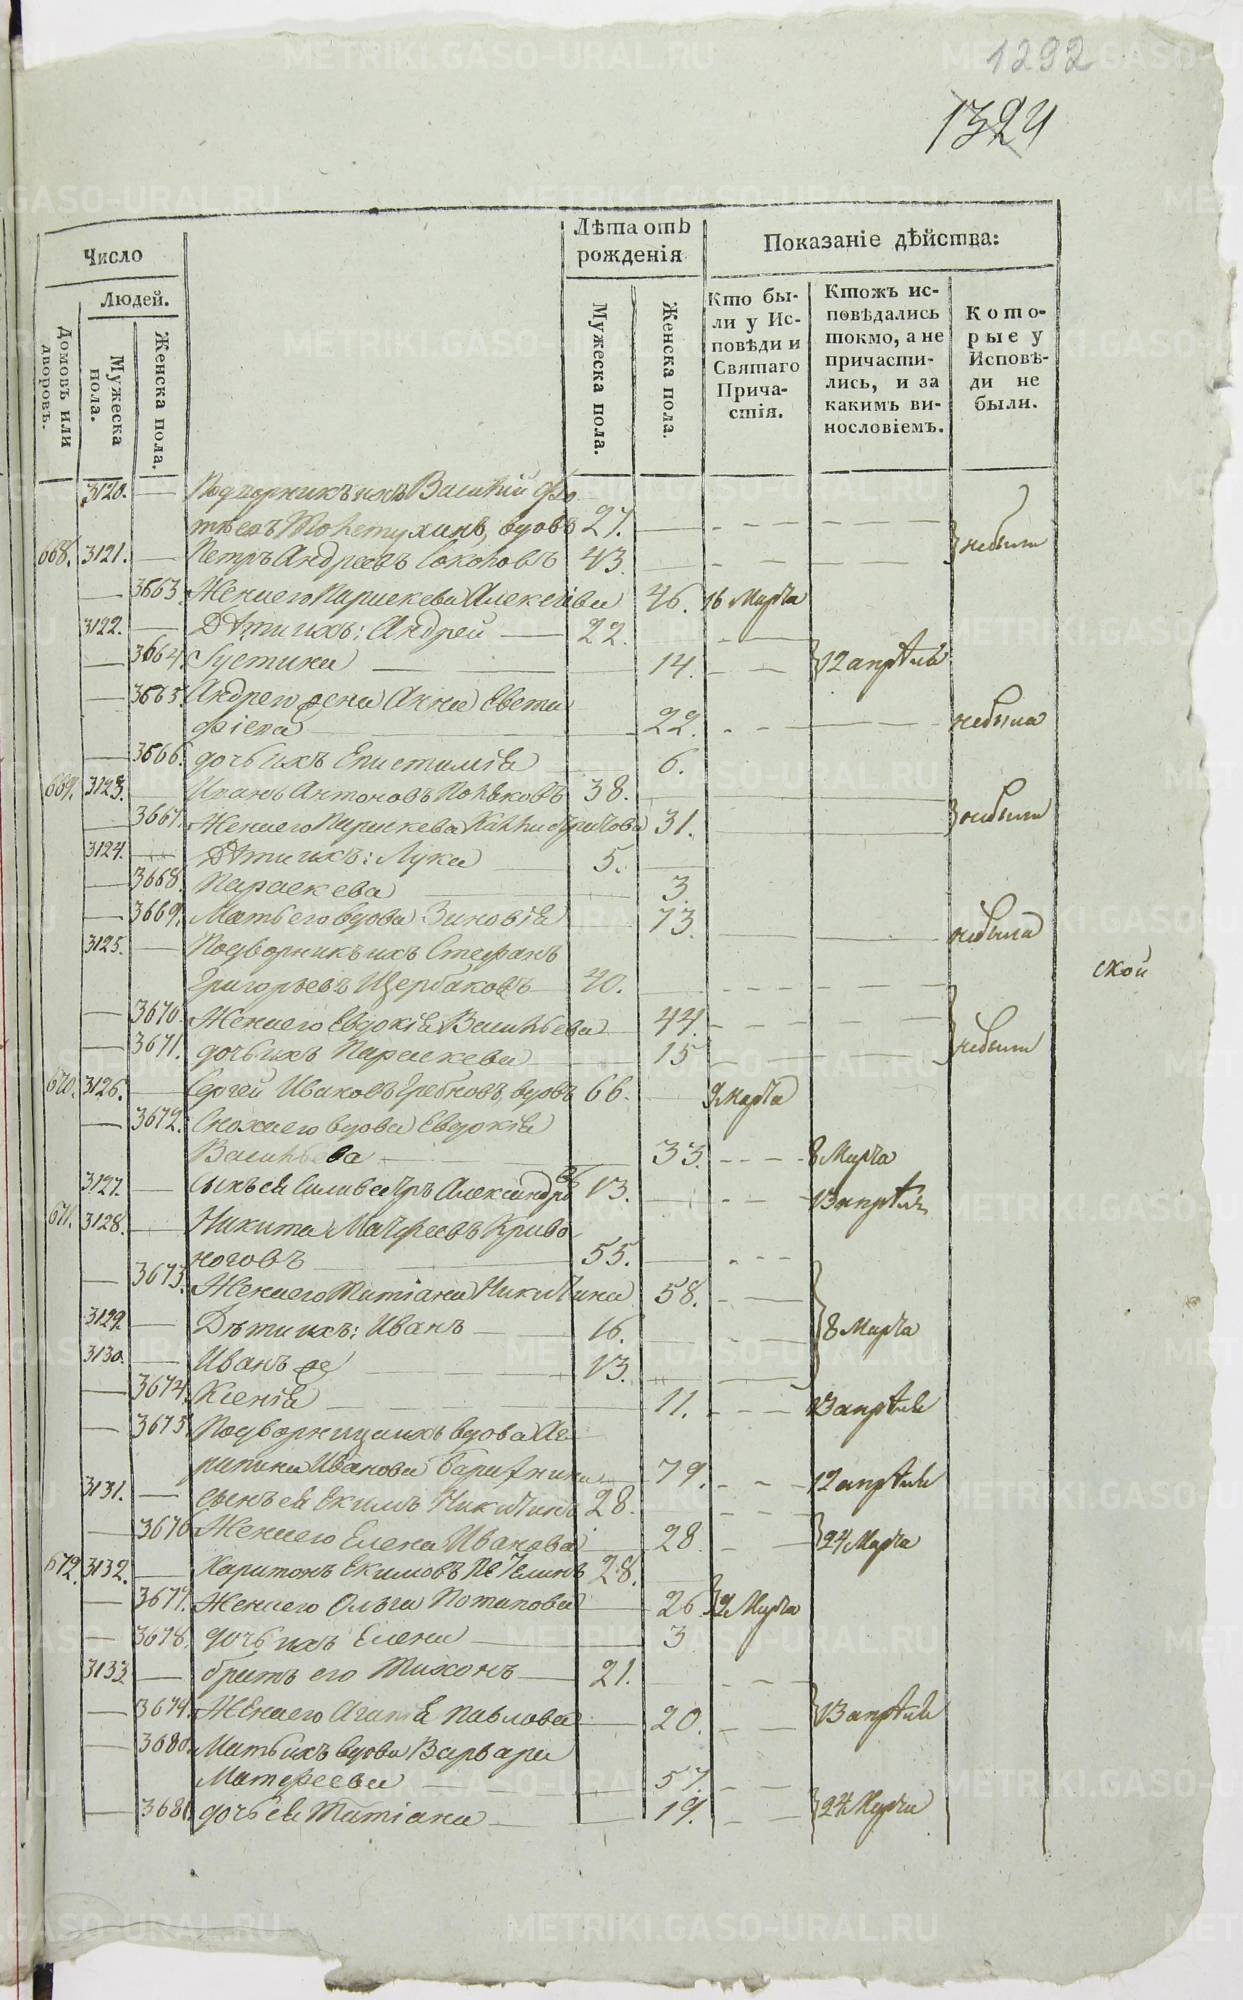 1292
1324
Число
Лѣта отъ рожденія
Показаніе дѣйства:
Людей.
Домовъ или дворовъ.
Мужеска пола.
Женска пола.
Мужеска пола.
Женска пола.
Кто были у Исповѣди и Святаго Причастія.
Ктожъ исповѣдались токмо, а не причастились, и за какимъ винословіемъ.
Которые у Исповѣди не были.
3120. Василий
вдовъ 27.
668. 3121. Петръ Андреевъ Соколовъ 43. небыли
3663. Жена его Параскева Алексіева 46. 16 Марта
3122. Дѣти ихъ: Андрей 22.
3664. Густина 14. 12 апрѣля
3665. Андрея жена Анна Евста
фіева 22. небыла
3666. дочь ихъ Епистимія 6.
669. 3123. Иванъ Антоновъ Поляковъ 38.
3667. Жена его Параскева 31. небыли
3124. Дѣти ихъ: Лука 5.
3668. Параскева 3.
3669. Мать его вдова Зиновія 73. небыла
3125. Подворникъ ихъ Стефанъ
Григорьевъ Щербаковъ 40.
ской
3670. Жена его Евдокія Васильева 44.
3671. дочь ихъ Параскева 15 небыли
670. 3126. Сергей Ивановъ Гребновъ, вдовъ 66. 9 Марта
3672. Сноха его вдова Евдокія
Васильева 33. 8 Марта
3127. Сынъ ея Силивестръ Александровъ 13. 13 апрѣля
671. 3128. Никита Матфеевъ Криво
ноговъ 55.
3673. Жена его Татіана Никитина 58.
3129. Дѣти ихъ: Иванъ 16. 8 Марта
3130. Иванъ же 13.
3674. Ксенія 11. 13 апрѣля
3675. Подворница ихъ вдова Аг
рипина Иванова 79. 12 апрѣля
3131. сынъ ея Екимъ Никитинъ 28.
3676. Жена его Елена Иванова 28 24 Марта
672. 3132. Харитонъ Екимовъ 28.
3677. Жена его Ольга Потапова 26. 9 Марта
3678. дочь ихъ Елена 3
3133. братъ его Тихонъ 21.
3679. Жена его Агафія Павлова 20. 13 апрѣля
3680. Мать ихъ вдова Варвара
Матфеева 57.
3681. дочь ея Татіана 19. 24 Марта
METRIKI.GASO-URAL.RU